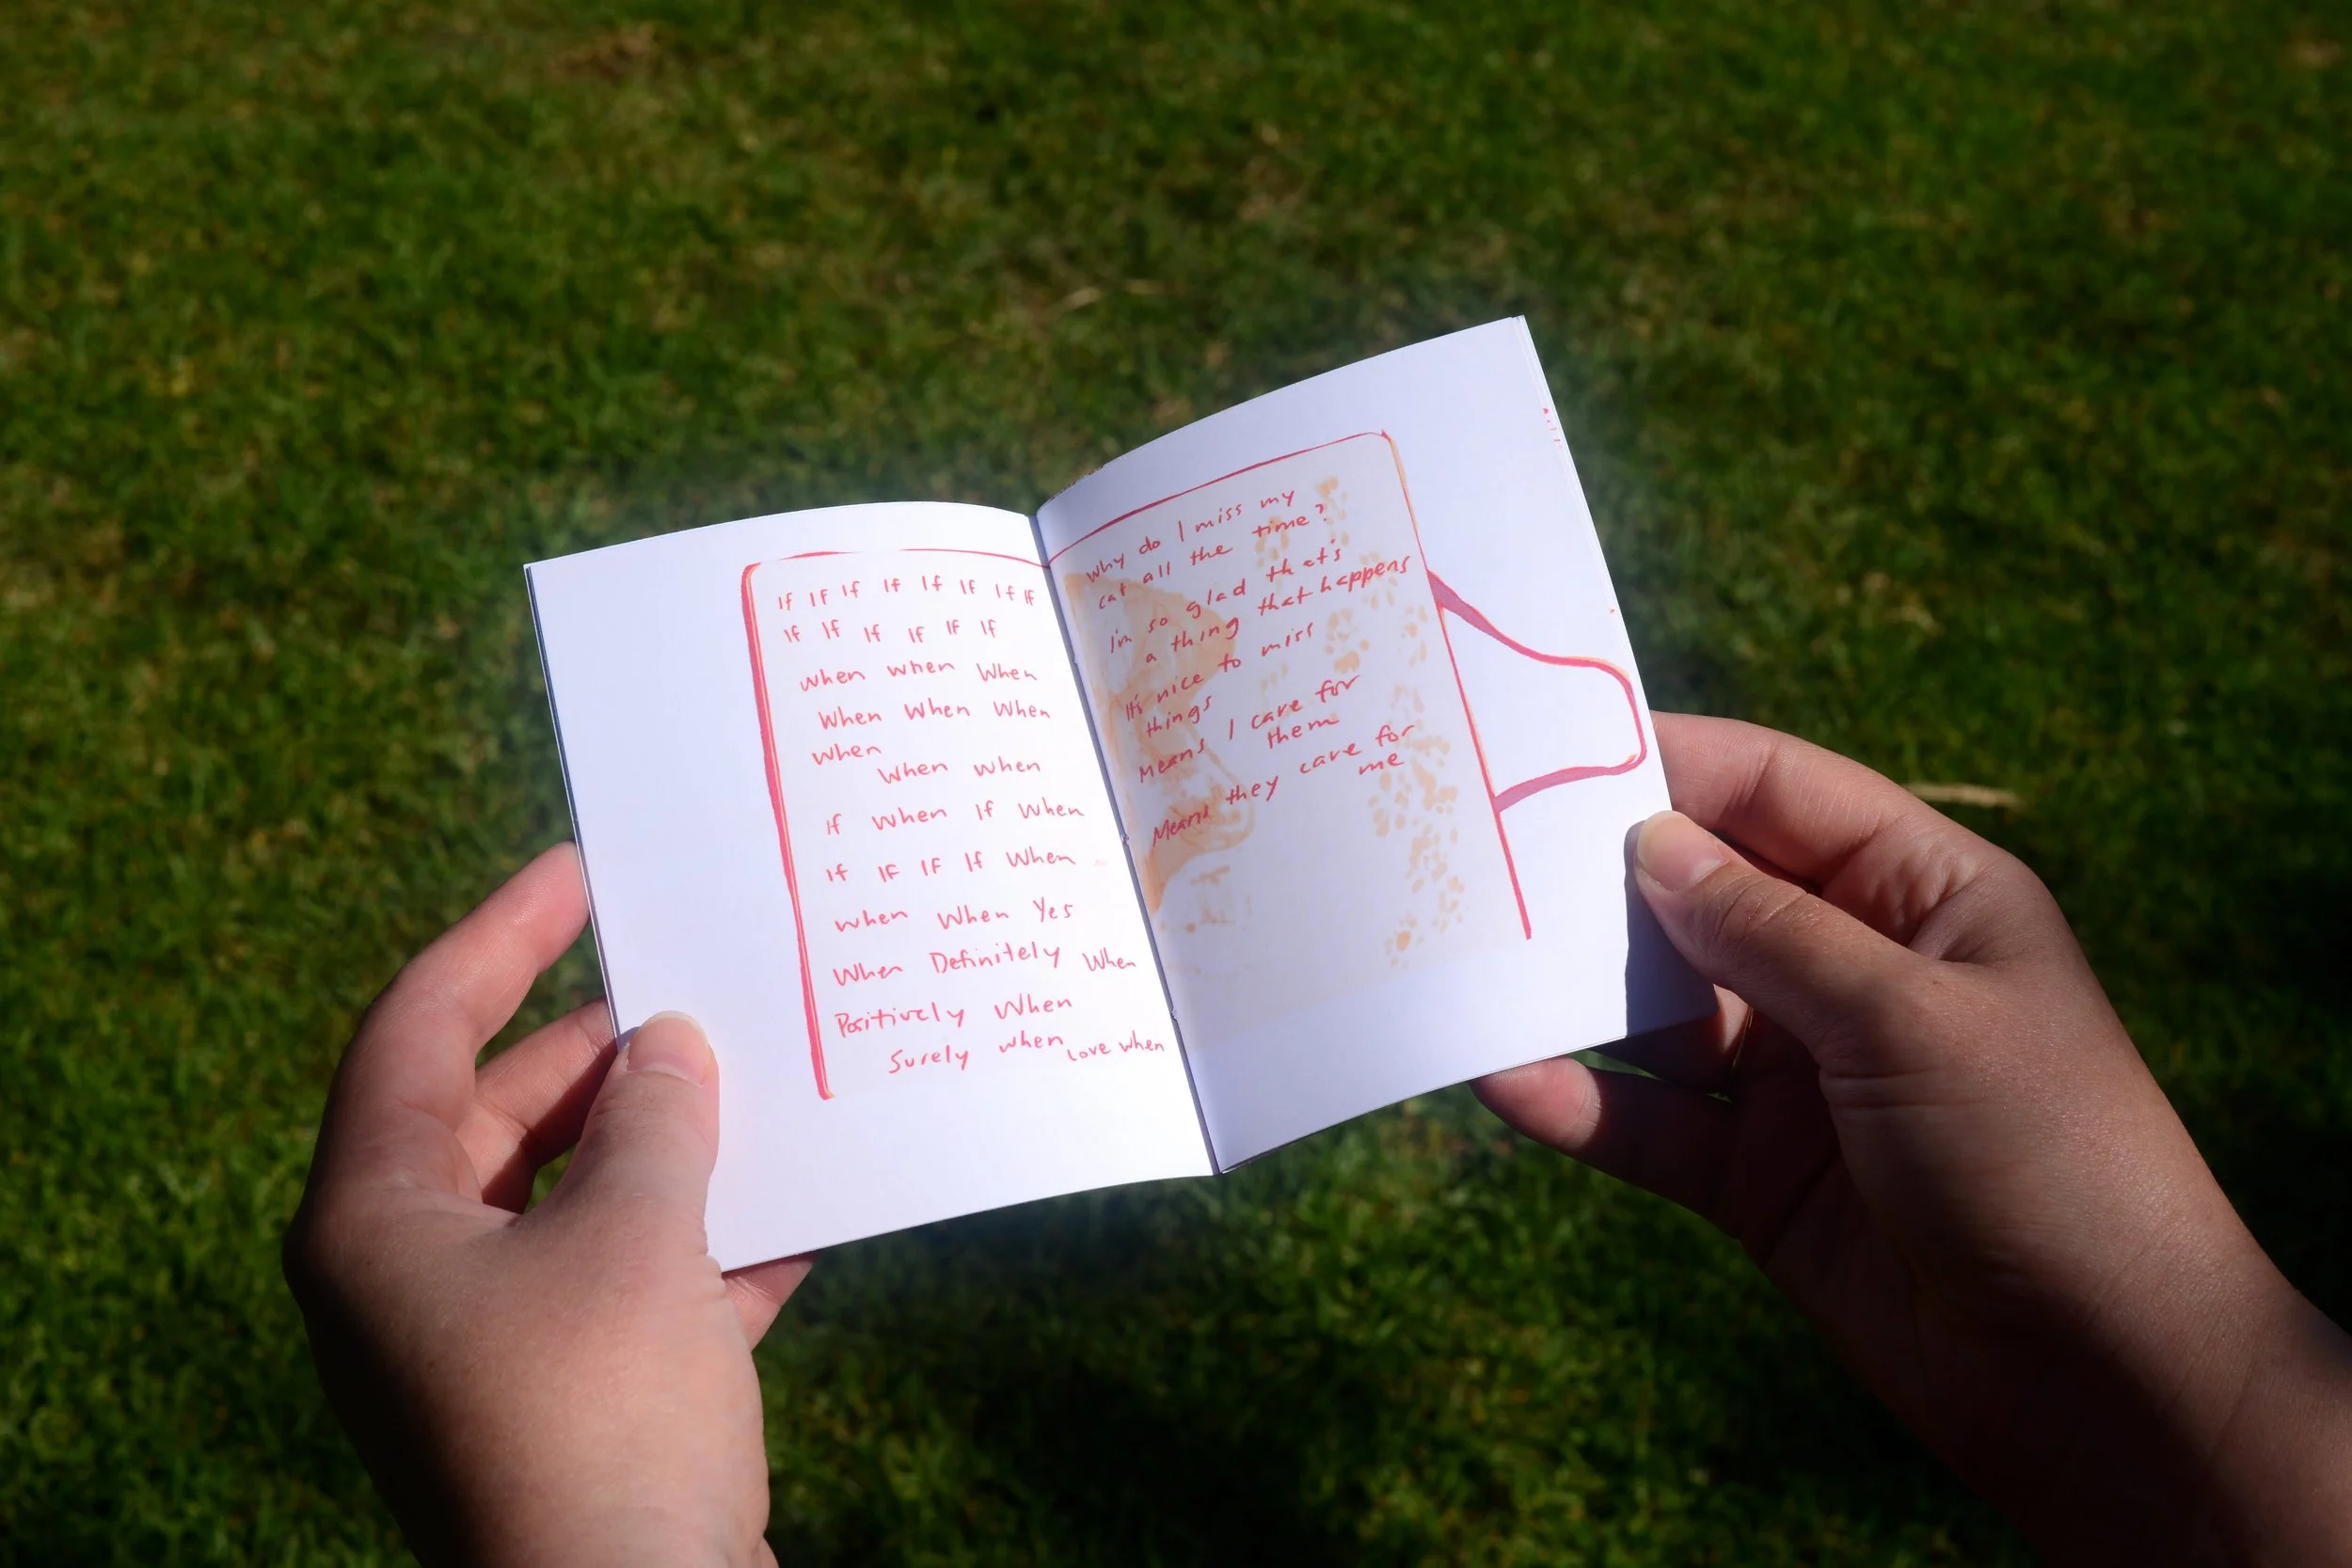 If If If If If If If If
If If If If If If
when when When
When When When
When
When when
If When If When
If IF IF If When
when When Yes
When Definitely When
Positively When
Surely when love when
Why do I miss my
cat all the time?
I'm so glad that's
a thing that happens
It's nice to miss
things
Means I care for
them
Means they care for
me